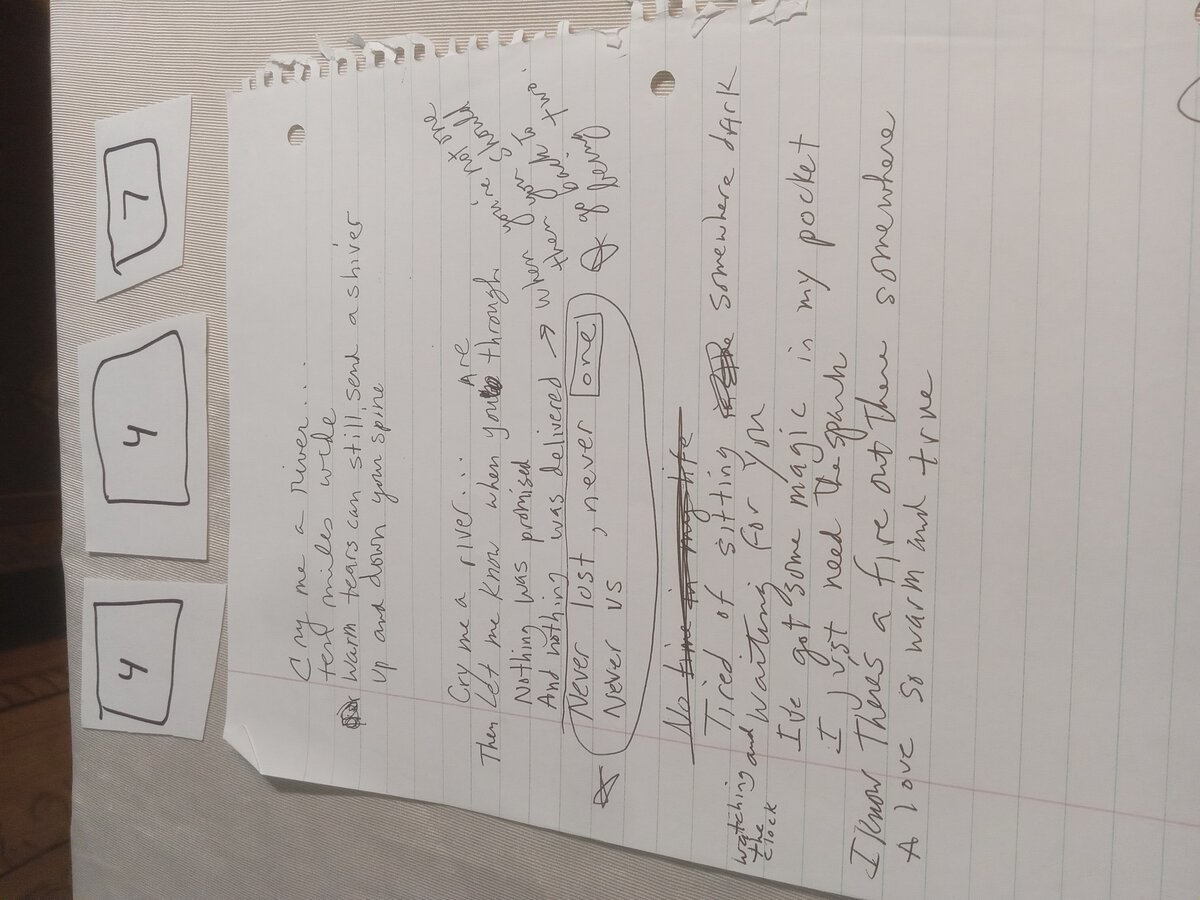 4
4
7
Cry me a river...
ten miles wide
warm tears can still send a shiver
up and down your spine
Cry me a river...
Then let me know when you are through
Nothing was promised
And nothing was delivered → when you're not one
Never lost, never one
Never us
No time in my life
Tired of sitting somewhere dark
watching the clock and waiting for you
I've got some magic in my pocket
I just need the spark
I know there's a fire out there somewhere
A love so warm and true